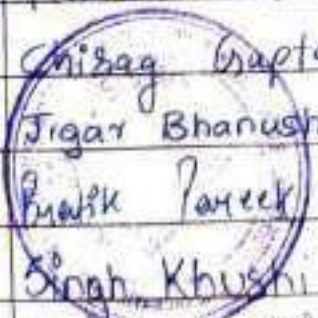 Chirag Gupta
Jigar Bhanush
Pratik Pareek
Singh Khushi